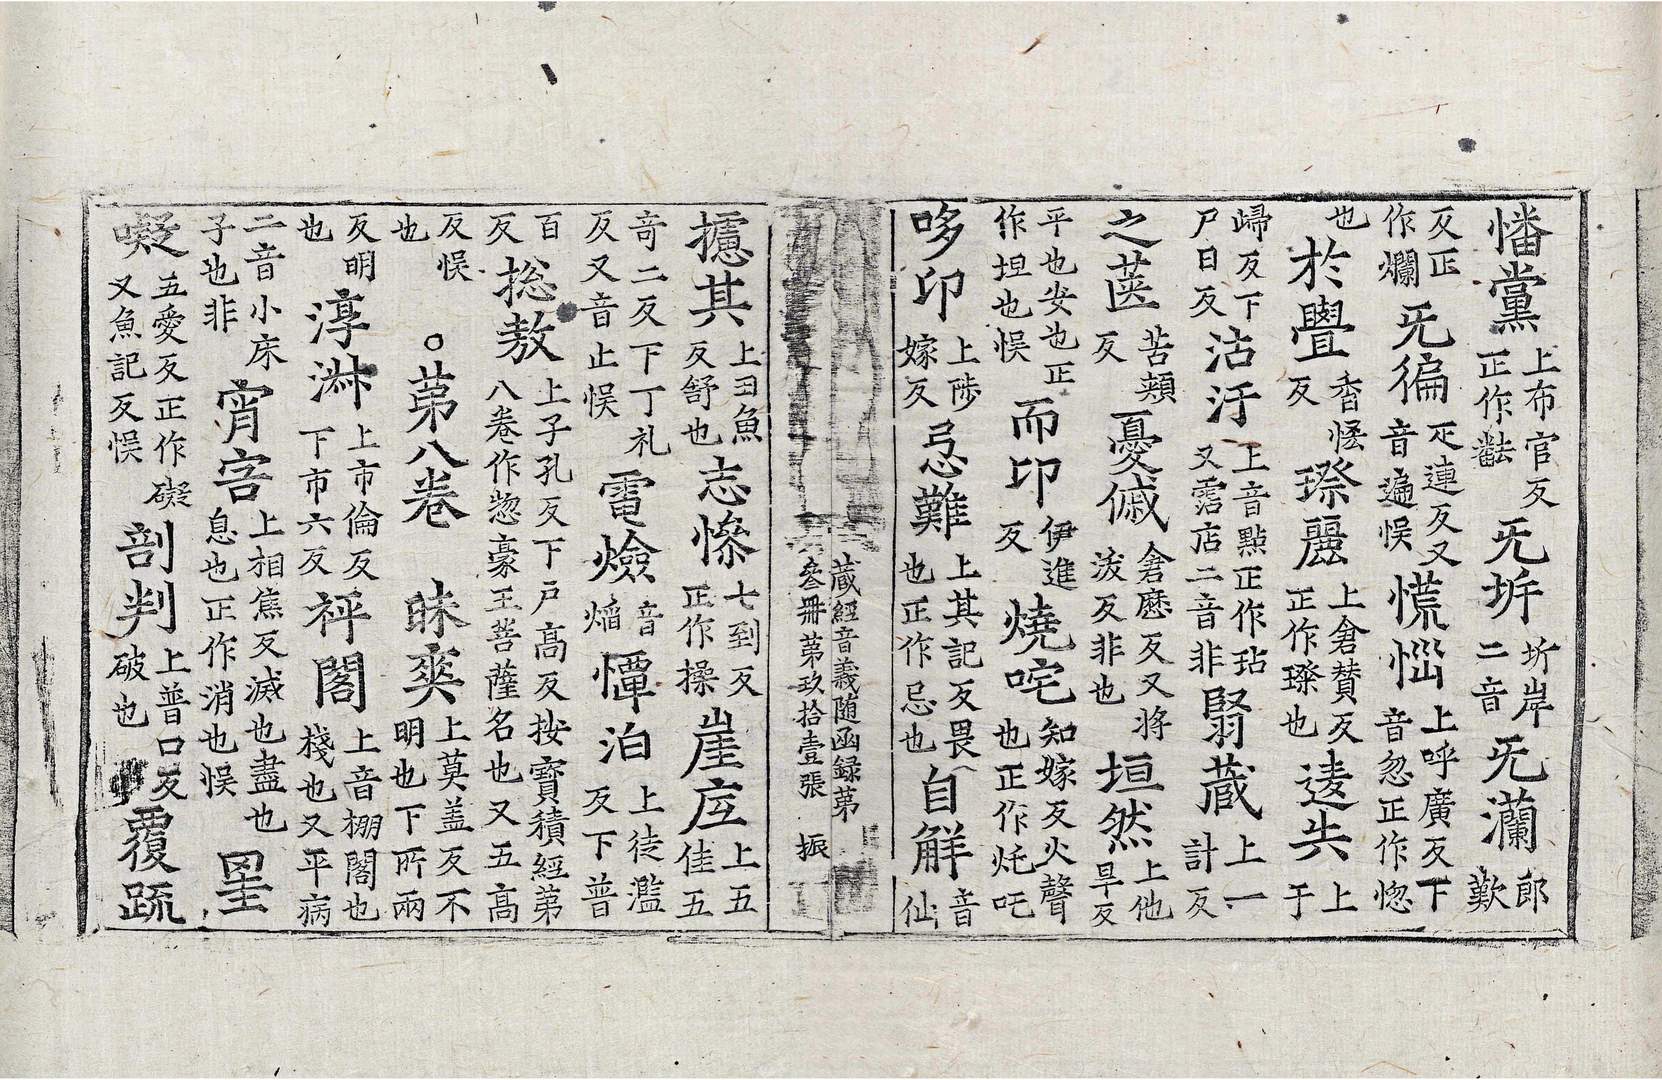 憣黨上布官反正作𪇊旡圻圻岸二音旡瀾郎歎
反正作爛旡徧疋連反又音遍悮慌惱上呼廣反下音忽正作惚
也於舋香悋反璨麗上倉賛反正作璨也逺出上于
歸反下尸日反沾汙上音㸃正作玷又霑店二音非翳蔵上一計反
之箧苦頰反憂慽倉歷反又將淡反非也垣然上他旱反
平也安也正作坦也悮而印伊進反燒咤知嫁反火聲也正作灹吒
哆印上陟嫁反忌難上其記反畏也正作忌也自解音仙
蔵經音義随函録第
叄册第玖拾壹張　振
攄其上丑魚反舒也志㦗七到反正作操崖㡯上五佳五
竒二反下丁礼反又音止悮電爁音焰憚泊上徒濫反下普
百反揔敖上子孔反下戸高反按寶積經第八卷作惣豪王菩薩名也又五高
反悮也○苐八卷昧爽上莫盖反不明也下所兩
反明也淳淋上市倫反下市六反枰閣上音棚閣也棧也又平病
二音小床子也非宵㝓上相焦反滅也盡也息也正作消也悮罣
礙五愛反正作礙又魚記反悮剖判上普口反破也覆䟽